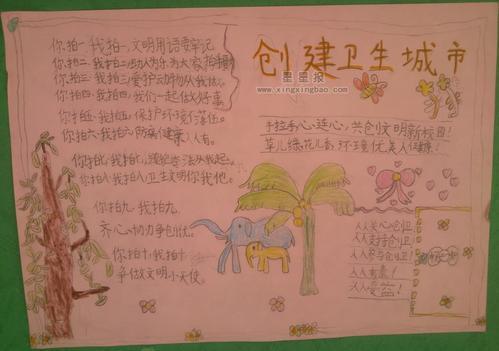 创建卫生城市
星星报
www.xingxingbao.com
你拍一,我拍一,文明用语要牢记
你拍二,我拍二,助人为乐为大家
你拍三,我拍三,爱护云力物从我做
你拍四,我拍四,我们一起做好事
你拍五,我拍五,保护环境有责任。
你拍六,我拍六,防病健康人人有。
你拍七,我拍七,遵纪守法从我起。
你拍八,我拍八,卫生文明你我他。
你拍九,我拍九,
齐心协力争创优。
你拍十,我拍十
争做文明小天使。
手拉手,心连心,共创文明新校园!
草儿绿,花儿香,环境优美人健康!
人人关心创卫
人人支持创卫
人人参与创卫!
人人有责!
人人受益!